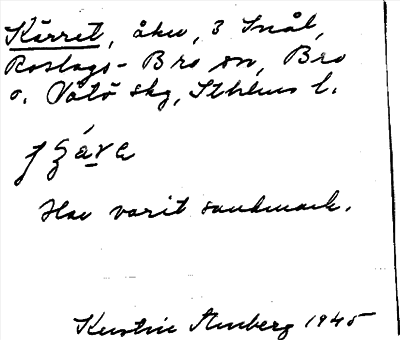 Kärret, åker, 3 Snål,
Roslags-Bro sn, Bro
o. Vätö skg, Sthlms l.
Har varit sankmark.
Kerstin Amberg 1945